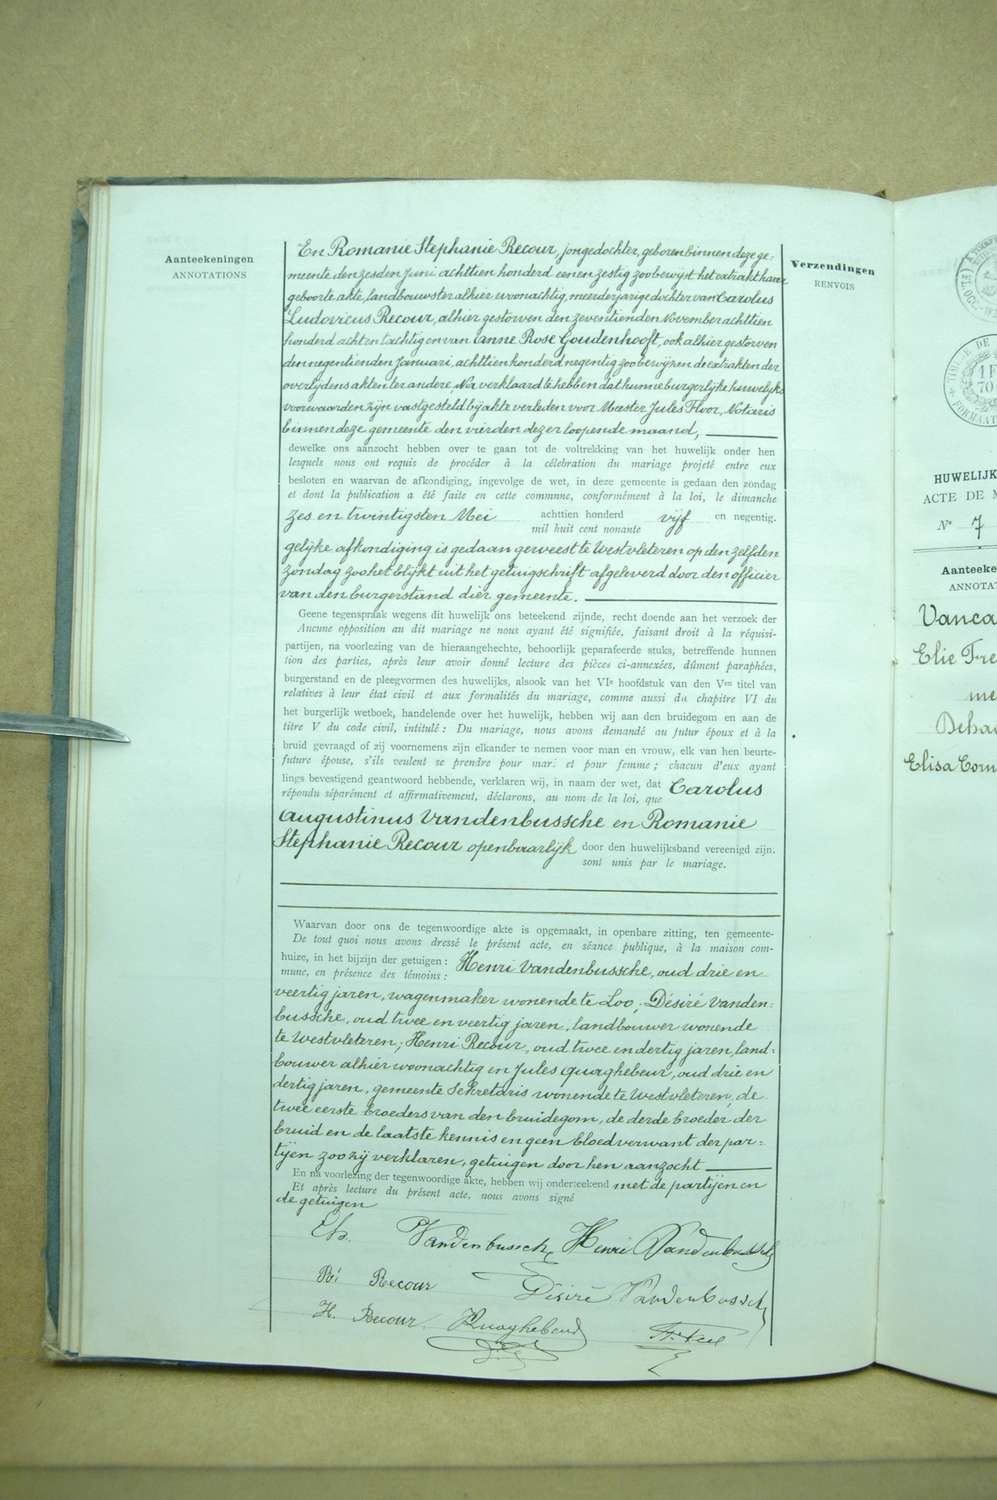 Aanteekeningen
ANNOTATIONS
En Romanie Stephanie Recour, jongedochter, geboren binnen deze ge-
meente den zesden Juni achttien honderd een en zestig zoo bewijst het extrakt harer
geboorte akte, landbouwster alhier woonachtig, meerderjarige dochter van Carolus
Ludovicus Recour, alhier gestorven den zeventienden November achttien
honderd acht en tachtig en van Anne Rose Goudenhooft, ook alhier gestorven
den negentienden Januari achttien honderd negentig zoo bewijzen de extrakten der
overlijdens akten ter andere. Na verklaard te hebben dat hunne burgerlijke huwelijks
voorwaarden zijn vastgesteld bij akte verleden voor Meester Jules Floor, Notaris
binnen deze gemeente den vierden dezer loopende maand,
dewelke ons aanzocht hebben over te gaan tot de voltrekking van het huwelijk onder hen
lesquels nous ont requis de procéder à la célébration du mariage projeté entre eux
besloten en waarvan de afkondiging, ingevolge de wet, in deze gemeente is gedaan den zondag
et dont la publication a été faite en cette commune, conformément à la loi, le dimanche
zes en twintigsten Mei achttien honderd vijf en negentig.
mil huit cent nonante
gelijke afkondiging is gedaan geweest te Westvleteren op den zelfden
zondag zoo het blijkt uit het getuigschrift afgeleverd door den officier
van den burgerstand dier gemeente.
Geene tegenspraak wegens dit huwelijk ons beteekend zijnde, recht doende aan het verzoek der
Aucune opposition au dit mariage ne nous ayant été signifiée, faisant droit à la réquisi-
partijen, na voorlezing van de hieraangehechte, behoorlijk geparafeerde stuks, betreffende hunnen
tion des parties, après leur avoir donné lecture des pièces ci-annexées, dûment paraphées,
burgerstand en de pleegvormen des huwelijks, alsook van het VIe hoofdstuk van den Ven titel van
relatives à leur état civil et aux formalités du mariage, comme aussi du chapitre VI du
het burgerlijk wetboek, handelende over het huwelijk, hebben wij aan den bruidegom en aan de
titre V du code civil, intitulé : Du mariage, nous avons demandé au futur époux et à la
bruid gevraagd of zij voornemens zijn elkander te nemen voor man en vrouw, elk van hen beurte-
future épouse, s'ils veulent se prendre pour mari et pour femme ; chacun d'eux ayant
lings bevestigend geantwoord hebbende, verklaren wij, in naam der wet, dat Carolus
répondu séparément et affirmativement, déclarons, au nom de la loi, que
Augustinus Vandenbussche en Romanie
Stephanie Recour openbaarlijk door den huwelijksband vereenigd zijn.
sont unis par le mariage.
Waarvan door ons de tegenwoordige akte is opgemaakt, in openbare zitting, ten gemeente-
De tout quoi nous avons dressé le présent acte, en séance publique, à la maison com-
huize, in het bijzijn der getuigen : Henri Vandenbussche, oud drie en
mune, en présence des témoins :
veertig jaren, wagenmaker wonende te Loo; Désiré Vanden-
bussche, oud twee en veertig jaren, landbouwer wonende
te Westvleteren; Henri Recour, oud twee en dertig jaren, land-
bouwer alhier woonachtig en Jules Quaghebeur, oud drie en
dertig jaren, gemeente Sekretaris wonende te Westvleteren, de
twee eerste broeders van den bruidegom, de derde broeder der
bruid en de laatste kennis en geen bloedverwant der par-
tijen zoo zij verklaren, getuigen door hen aanzocht
En na voorlezing der tegenwoordige akte, hebben wij onderteekend met de partijen en
Et après lecture du présent acte, nous avons signé
de getuigen
Ch. Vandenbussche Henri Vandenbussche
Ro. Recour Désiré Vandenbussche
H. Recour Quaghebeur
Verzendingen
RENVOIS
HUWELIJK
ACTE DE M
No 7
Aanteeke
ANNOTA
Vanca
Elie Fre
me
Deha
Elisa Corn